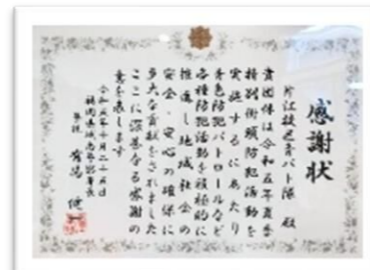 感謝状
片江校区青パト隊 殿
貴団体は令和五年夏季
特別街頭防犯活動を
実施するにあたり
青色防犯パトロールなど
各種防犯活動を積極的に
推進し地域社会の
安全・安心の確保に
多大な貢献をされました
ここに深甚なる感謝の
意を表します
令和五年十月二十五日
福岡県城南警察署長
警視